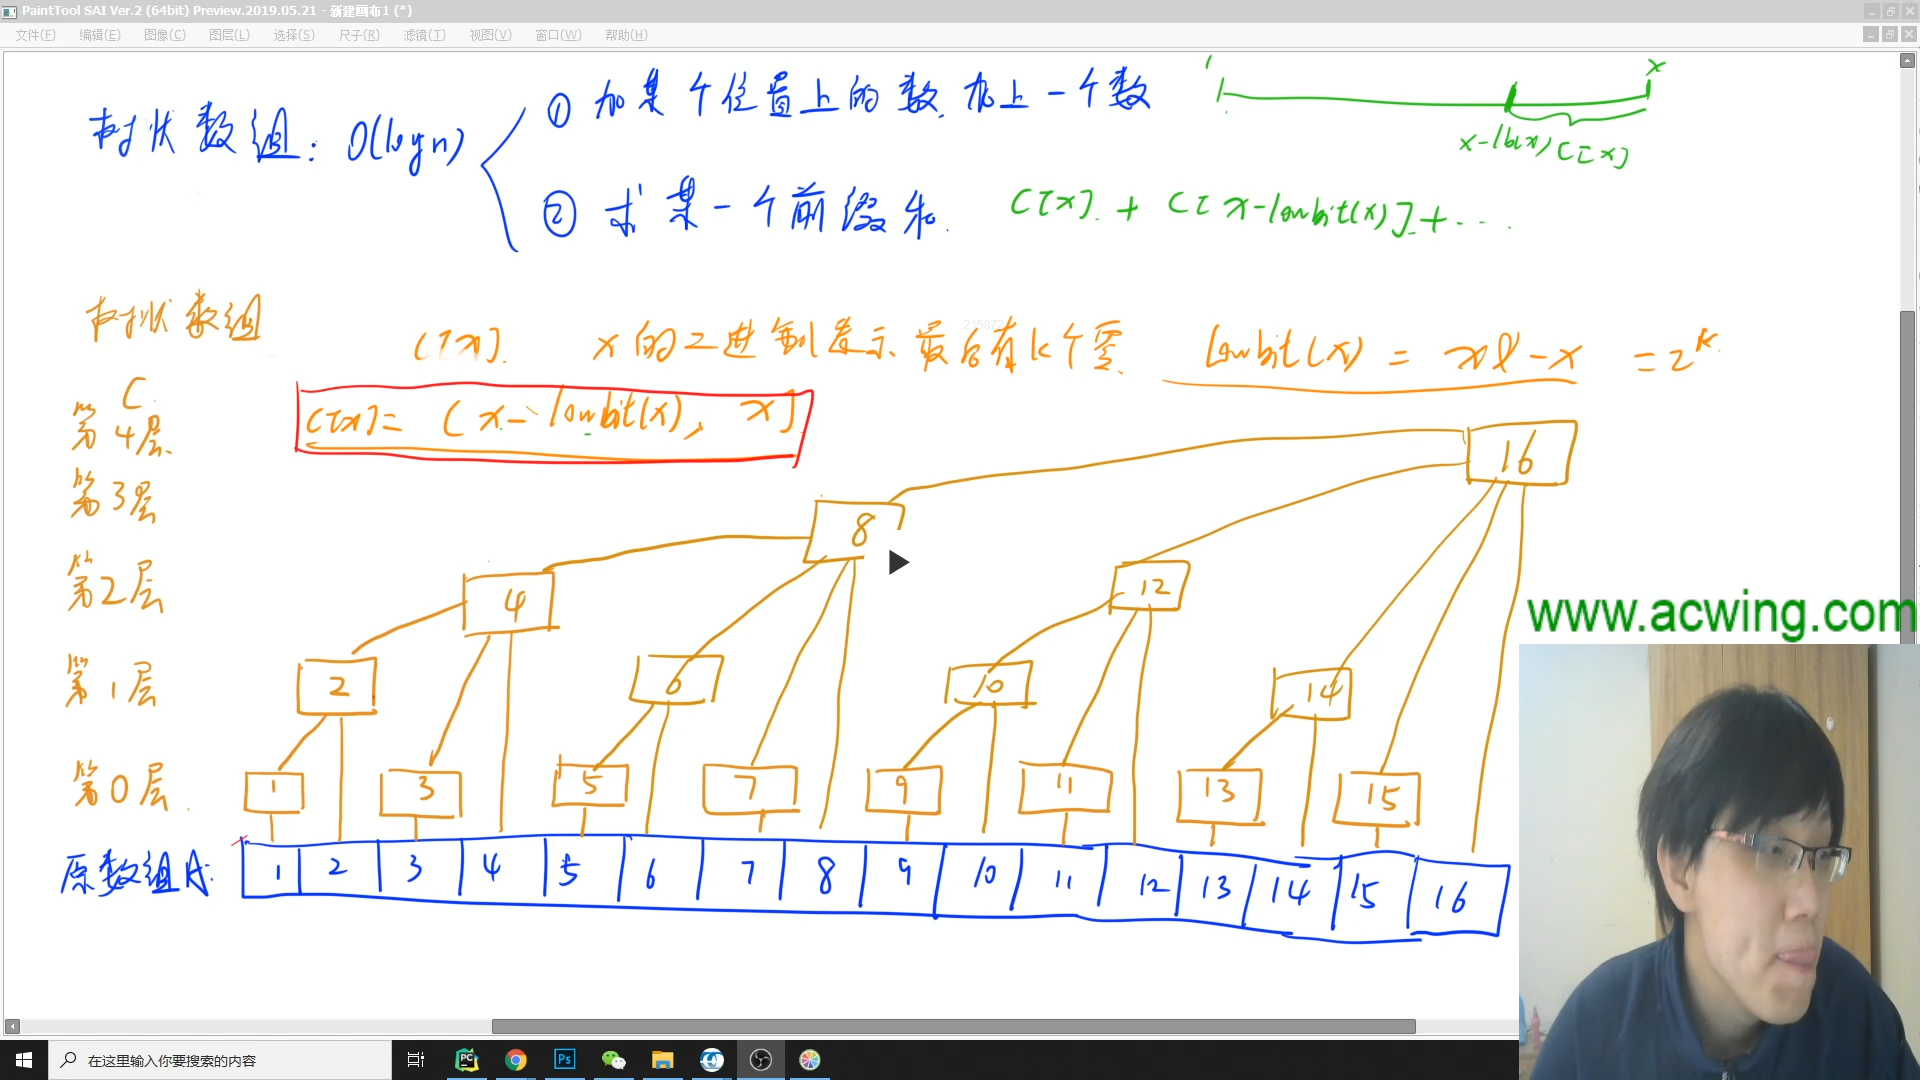 PaintTool SAI Ver.2 (64bit) Preview.2019.05.21 - 新建画布1 (*)
文件(F) 编辑(E) 图像(C) 图层(L) 选择(S) 尺子(R) 滤镜(T) 视图(V) 窗口(W) 帮助(H)
树状数组: O(logn)
① 加某个位置上的数,加上一个数
② 求某一个前缀和.
1 x
x-lb(x) C[x]
C[x] + C[x-lowbit(x)]+...
树状数组
C
C[x]. x的二进制表示最后有k个零. lowbit(x) = x&-x = 2^k
215872
C[x]= (x-lowbit(x), x]
第4层 16
第3层 8
第2层 4 12
第1层 2 6 10 14
第0层 1 3 5 7 9 11 13 15
原数组A: 1 2 3 4 5 6 7 8 9 10 11 12 13 14 15 16
www.acwing.com
在这里输入你要搜索的内容
PC
Ps